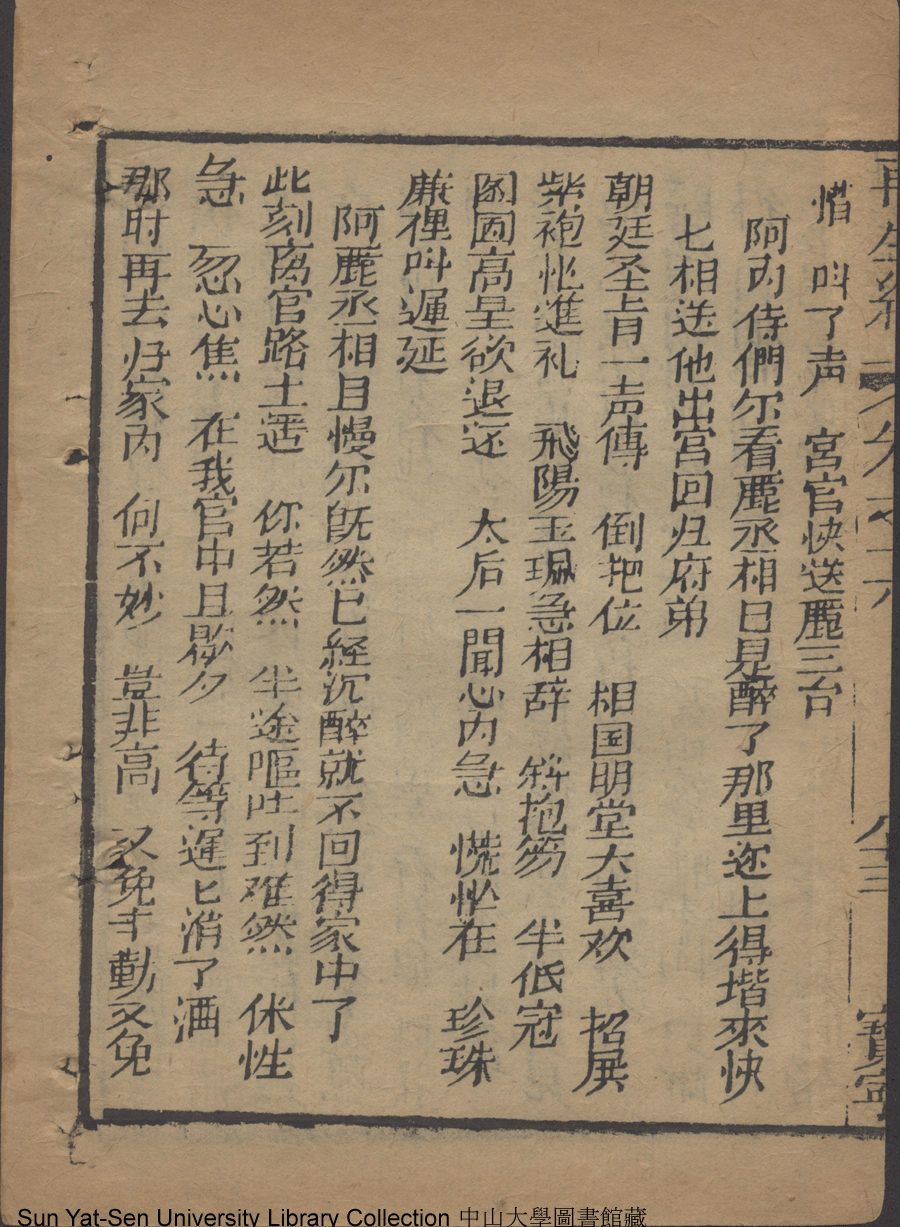 惜　叫了声　宮官快送酈三台
阿丙侍們尔看酈丞相日見醉了那里迩上得堦來快
七相送他出宫回归府弟
朝廷圣旨一声傳　倒拖位　相国明堂大喜欢　招展
紫袍忙進礼　飛陽玉珮急相辞　斜抱笏　半低冠
高呈欲退还　太后一聞心内急　慌忙在　珍珠
廉裡叫遲延
阿酈丞相且慢尔既然已経沉醉就不回得家中了
此刻离官路土遥　你若然　半途嘔吐到难然　休性
急　忽心焦　在我官中且歇夕　待等遲匕消了酒
那时再去归家内　何不妙　豈非高　又免丰動又免
再生緣
八十三
寶寧
Sun Yat-Sen University Library Collection 中山大學圖書館藏